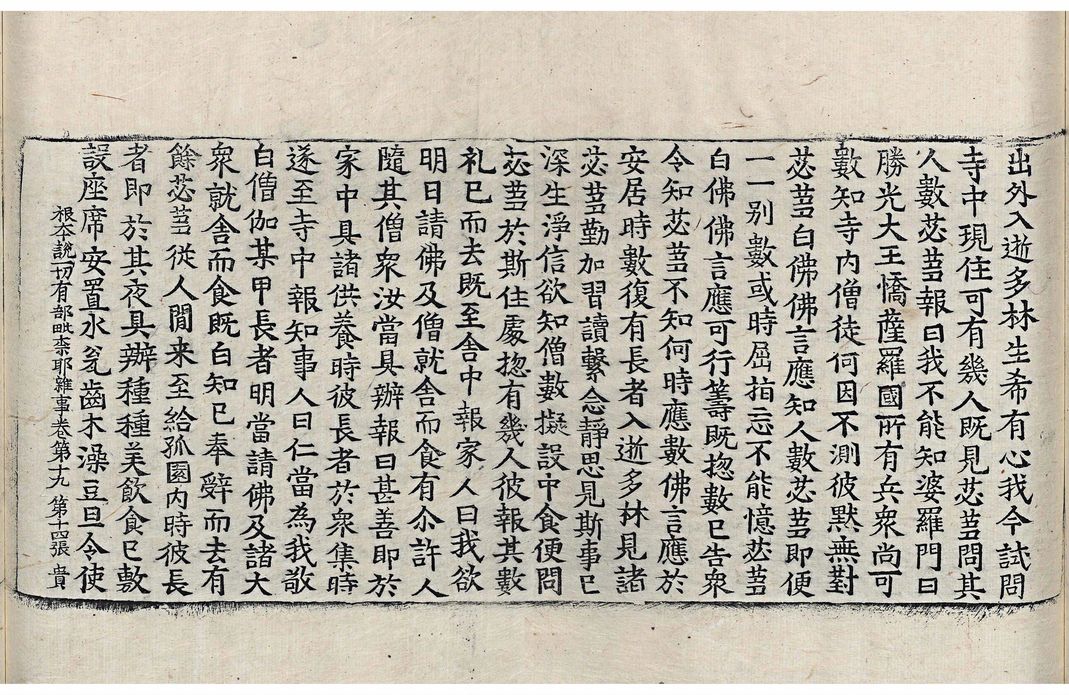 出外入逝多林生希有心我今試問
寺中現住可有幾人既見苾蒭問其
人數苾蒭報曰我不能知婆羅門曰
勝光大王憍薩羅國所有兵衆尚可
數知寺内僧徒何因不測彼默無對
苾蒭白佛佛言應知人數苾蒭即便
一一別數或時屈指忘不能憶苾蒭
白佛佛言應可行籌既揔數已告衆
令知苾蒭不知何時應數佛言應於
安居時數復有長者入逝多林見諸
苾蒭勤加習讀繫念靜思見斯事已
深生淨信欲知僧數擬設中食便問
苾蒭於斯住處揔有幾人彼報其數
礼已而去既至舍中報家人曰我欲
明日請佛及僧就舍而食有尒許人
隨其僧衆汝當具辦報曰甚善即於
家中具諸供養時彼長者於衆集時
遂至寺中報知事人曰仁當為我敬
白僧伽某甲長者明當請佛及諸大
衆就舍而食既白知已奉辞而去有
餘苾蒭從人閒来至給孤園内時彼長
者即於其夜具辦種種美飲食已敷
設座席安置水瓮齒木澡豆旦令使
根本說一切有部毗柰耶雜事卷第十九 第十四張 貴